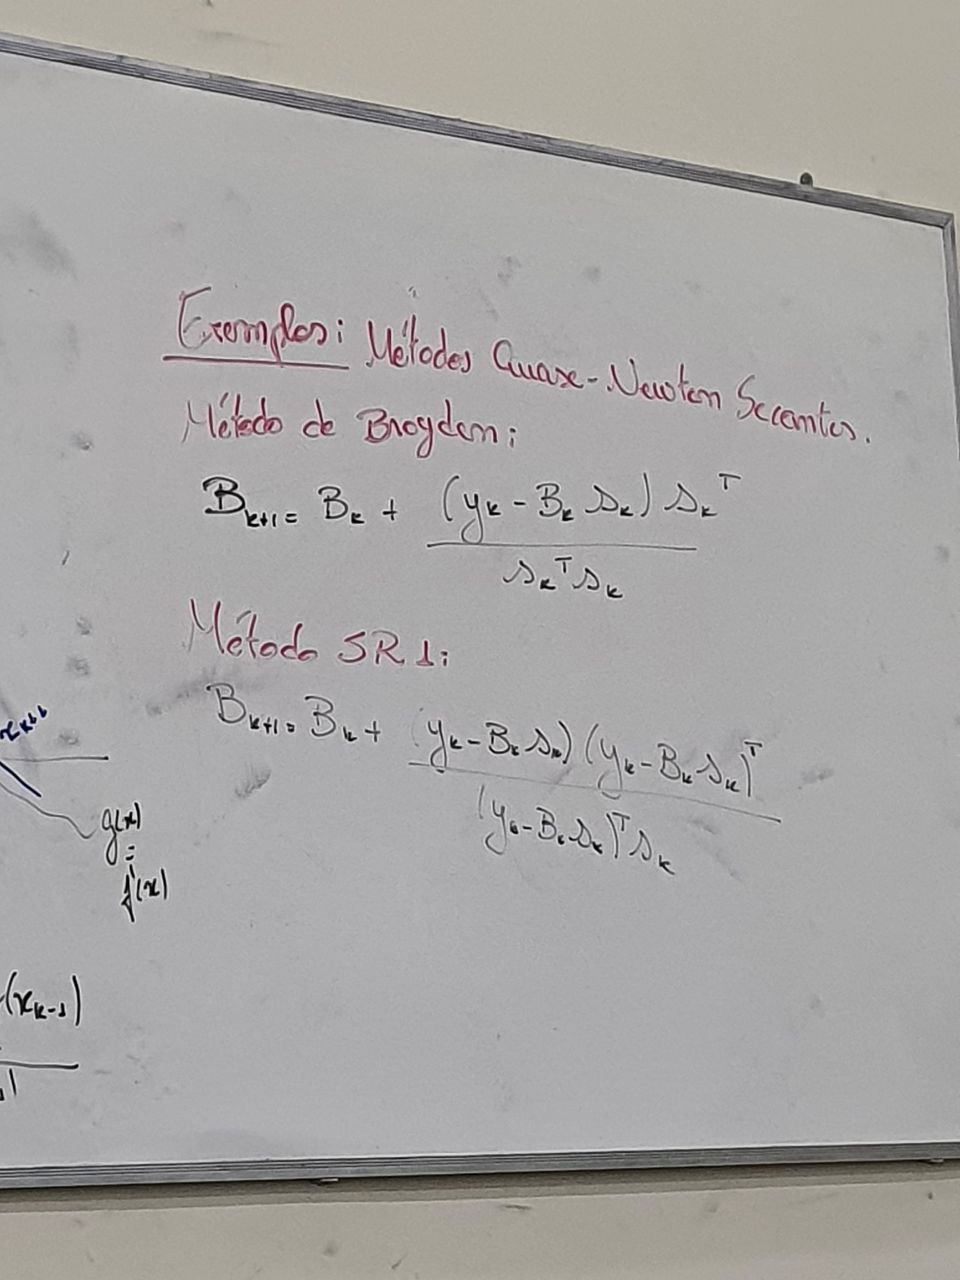 Exemplos: Métodos Quase-Newton Secantes.
Método de Broyden:
B_{k+1} = B_k + \frac{(y_k - B_k s_k) s_k^T}{s_k^T s_k}
Método SR1:
B_{k+1} = B_k + \frac{(y_k - B_k s_k)(y_k - B_k s_k)^T}{(y_k - B_k s_k)^T s_k}
x_{k+1}
g(x)
=
f'(x)
(x_{k-1})